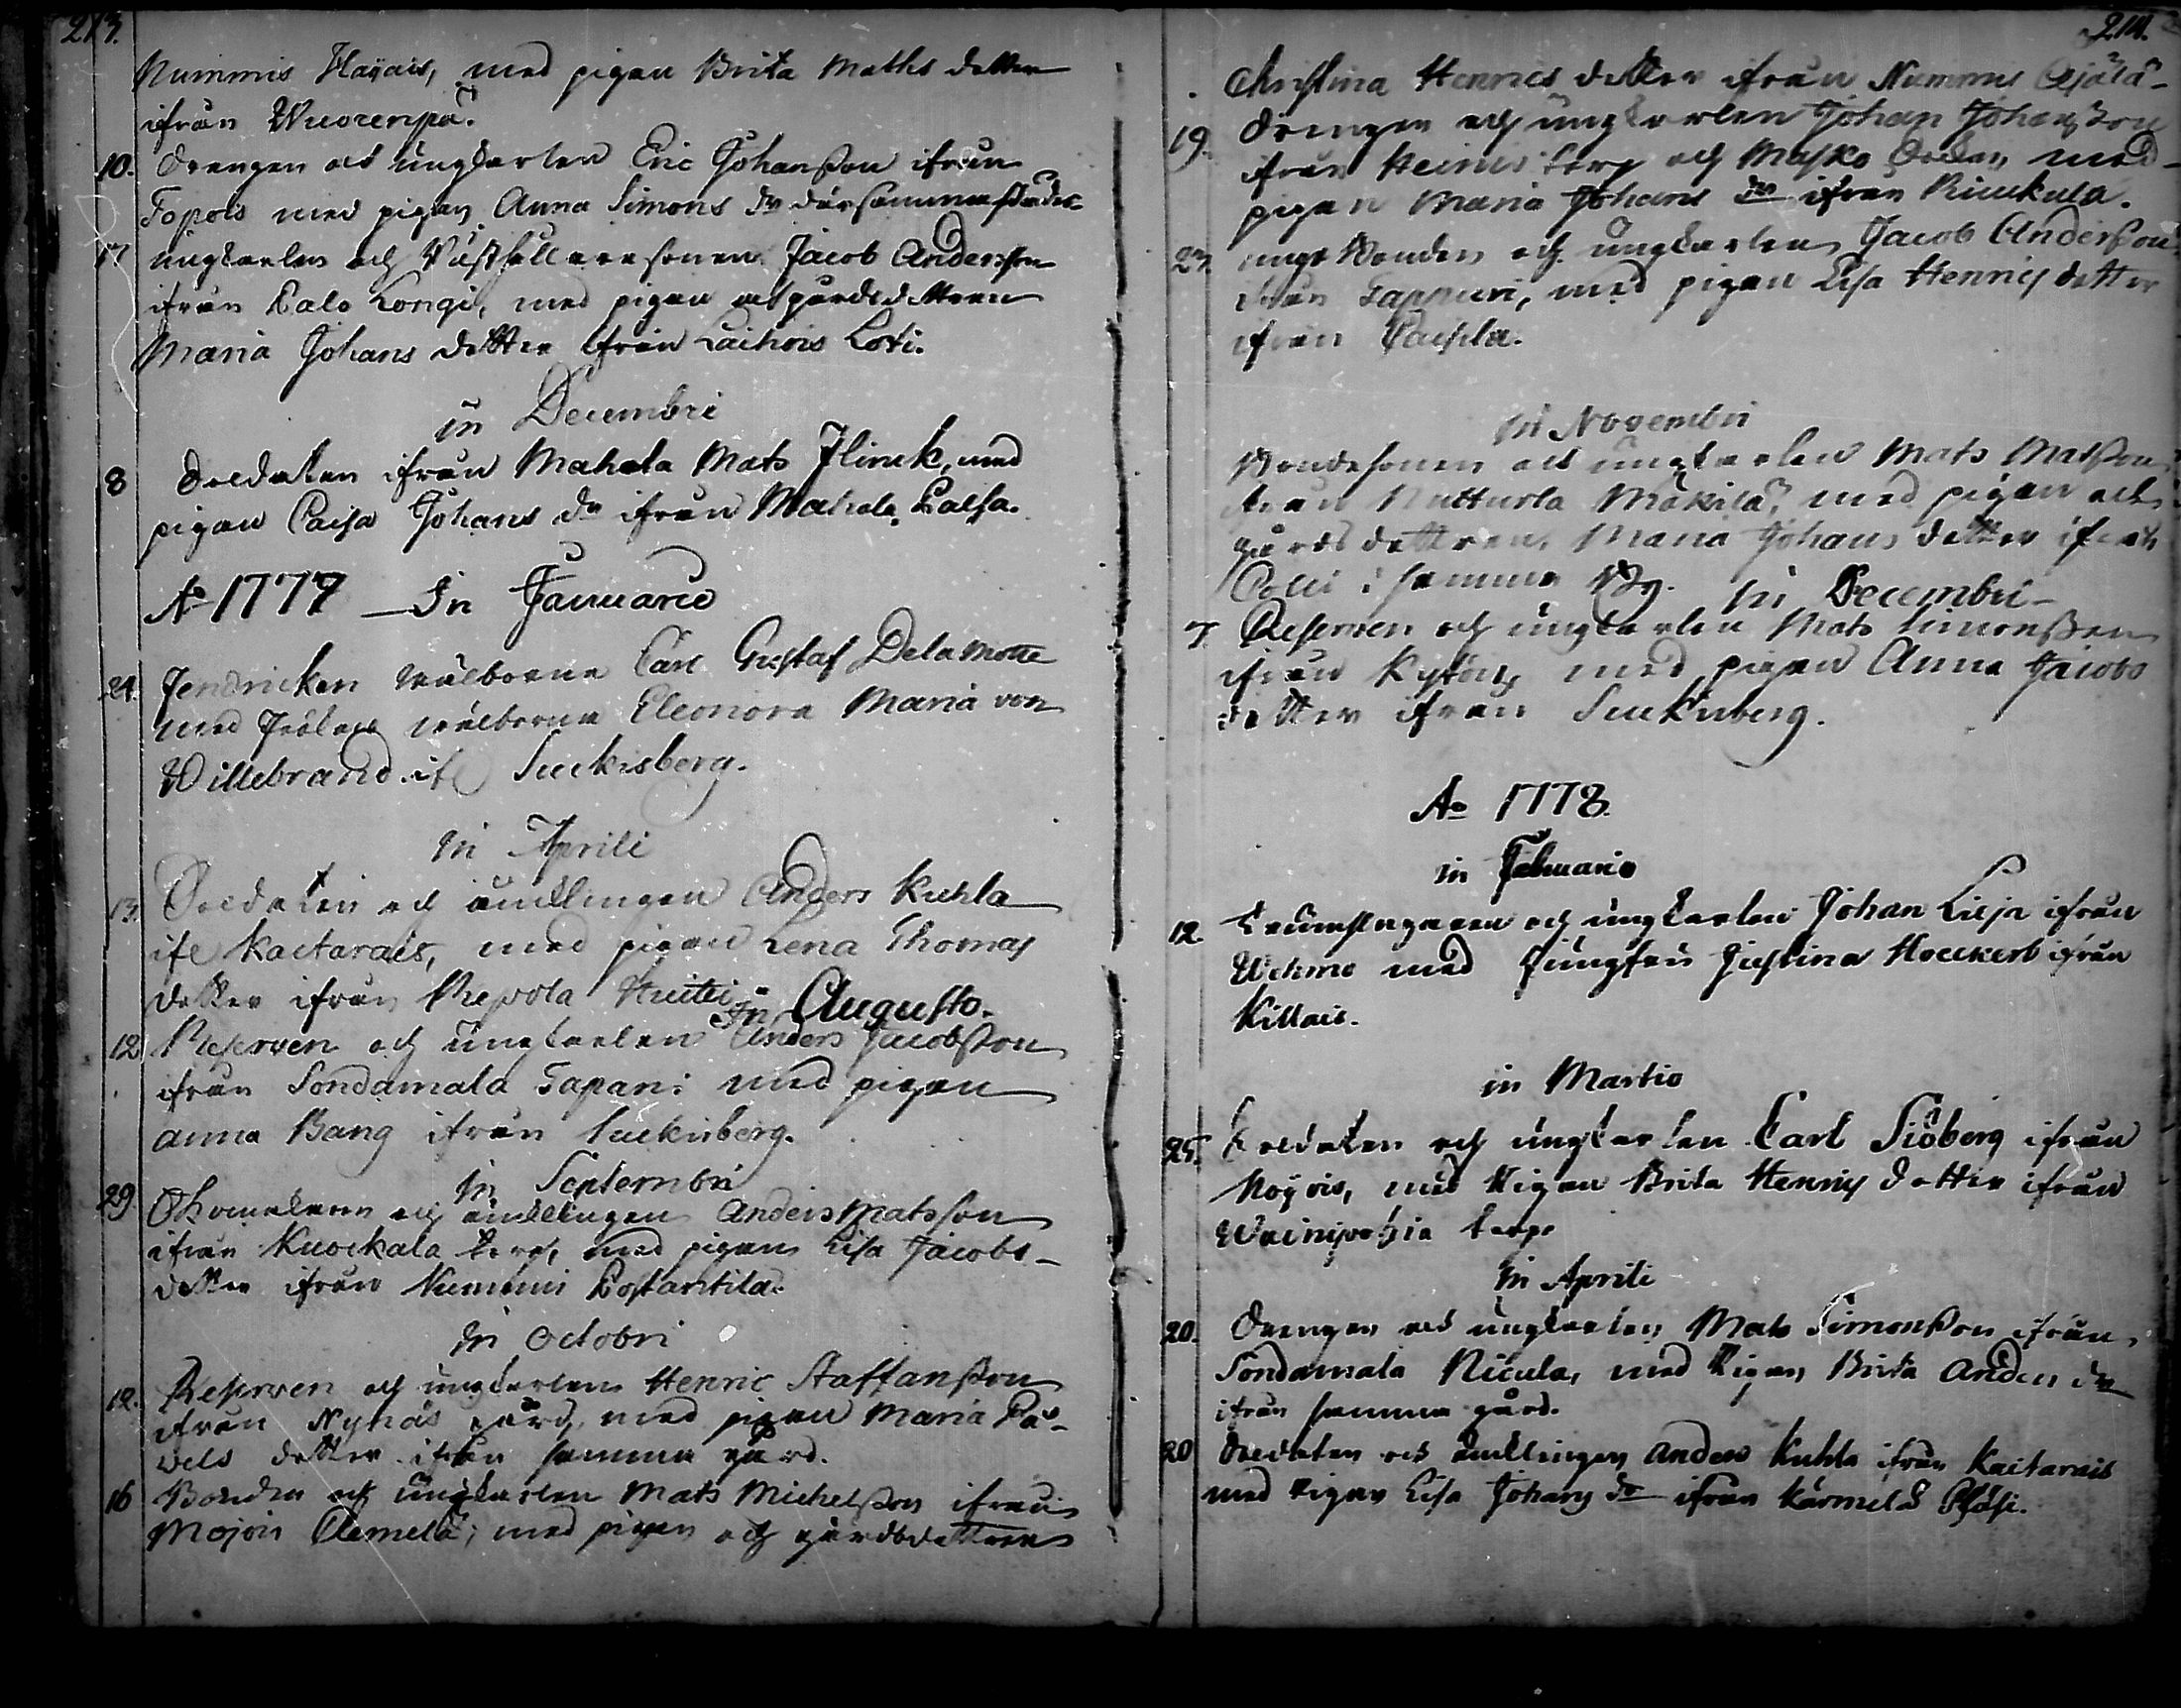 213.
Nummis Hayais, med pigan Brita Maths dotter
ifrån Wuorenpä.
10. Drengen och ungkarlen Eric Johansson ifrån
Topois med pigan Anna Simons dr därsammastädes
17 ungkarlen och Rusthållaresonen Jacob Andersson
ifrån Palo Longi, med pigan och gårdsdottren
Maria Johans dotter ifrån Laihois Loti.
in Decembri
8 Soldaten ifrån Mahala Mats Flinck, med
pigan Caisa Johans dr ifrån Mahala
Ao 1777 In Januario
24. Fendricken wälborne Carl Gustaf Delamotte
med Fröken wälborna Eleonora Maria von
Willebrand if Suckisberg.
in Aprili
13. Soldaten och änklingen Anders Kuhla
ifr Kaitarais, med pigan Lena Thomas
dotter ifrån Repola
in Augusto.
12 Reserven och ungkarlen Anders Jacobsson
ifrån Sondamala Tapani med pigan
Anna Bang ifrån Suckisberg.
in Septembri
29. och änklingen Anders Matsson
ifrån Kuockala torp, med pigan Lisa Jacobs-
dotter ifrån Nummi Costantila.
in Octobri
12. Reserven och ungkarlen Henric Staffansson
ifrån Nynäs gård, med pigan Maria På-
vels dotter ifrån samma gård.
16 Bonden och ungkarlen Mats Michelsson ifrån
Mojois Clemelä, med pigan och gårdsdottren
214.
Christina Henrics dotter ifrån Nummis Ojala
19. Drengen och ungkarlen Johan Johansson
ifrån Heinis torp och Masko Socken med
pigan Maria Johans dr ifrån Kuckula.
27. unge Bonden och ungkarlen Jacob Andersson
ifrån Tappuri, med pigan Lisa Henrics dotter
ifrån
in Novembri
Bondesonen och ungkarlen Mats Matsson
ifrån Nutturla Mäkilä, med pigan och
gårds dottren Maria Johans dotter ifrån
i samma By. in Decembri
7. Reserven och ungkarlen Mats Simonsson
ifrån med pigan Anna Jacobs
dotter ifrån Suckisberg.
Ao 1778.
in Februario
12. Trumslagaren och ungkarlen Johan Lilja ifrån
Wehmo med Jungfru Justina Hoeckert ifrån
Killais.
in Martio
25. Soldaten och ungkarlen Carl Siöberg ifrån
Nojois, med Pigan Brita Henrics dotter ifrån
torp
in Aprili
20. Drengen och ungkarlen Mats Simonsson ifrån
Sondamala Nicula, med Pigan Brita Anders dr
ifrån samma gård.
20 Soldaten och änklingen Anders Kuhla ifrån Kaitarais
med Pigan Lisa Johans dr ifrån Kärmelä